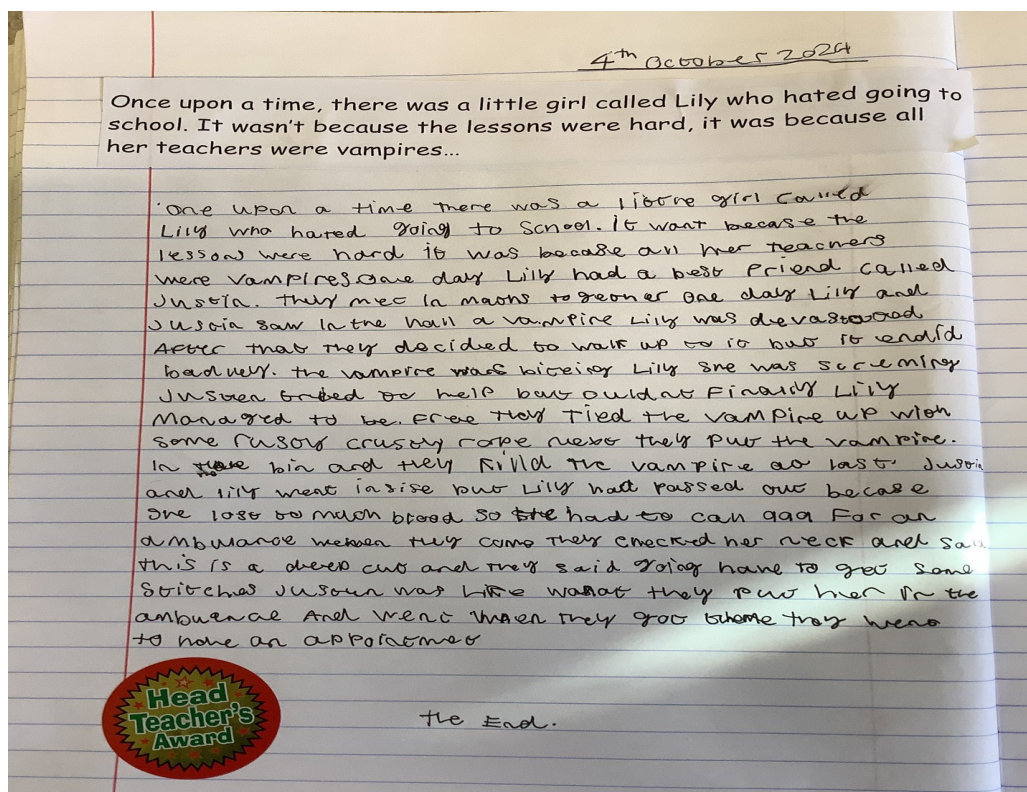 4th October 2024
Once upon a time, there was a little girl called Lily who hated going to
school. It wasn't because the lessons were hard, it was because all
her teachers were vampires...
One upon a time there was a littre girl called
Lily who hated going to School. It want becase the
lessons were hard it was becase all her teachers
were vampires one day Lily had a best Friend called
Justin. They met In maths together One day Lily and
Justin saw In the hall a vampire Lily was devastated
After that they decided to walk up to it but it endid
baduely. the vampire was biteing Lily She was screeming
Justen tried to help but ouldnt Finally Lily
Managed to be. Free they Tied the vampire up with
some rusty crusty rope next they put the vampire.
In the bin and they killd the vampire at last. Justin
and lily went insise but Lily had passed out becase
She lost to much blood so he had to call 999 For an
ambulance when they came they checked her neck and said
this is a deep cut and they said going have to get some
Stitches Justun was like what they put her in the
ambuence And went when they got there they went
to have an appointmet
The End.
Head
Teacher's
Award